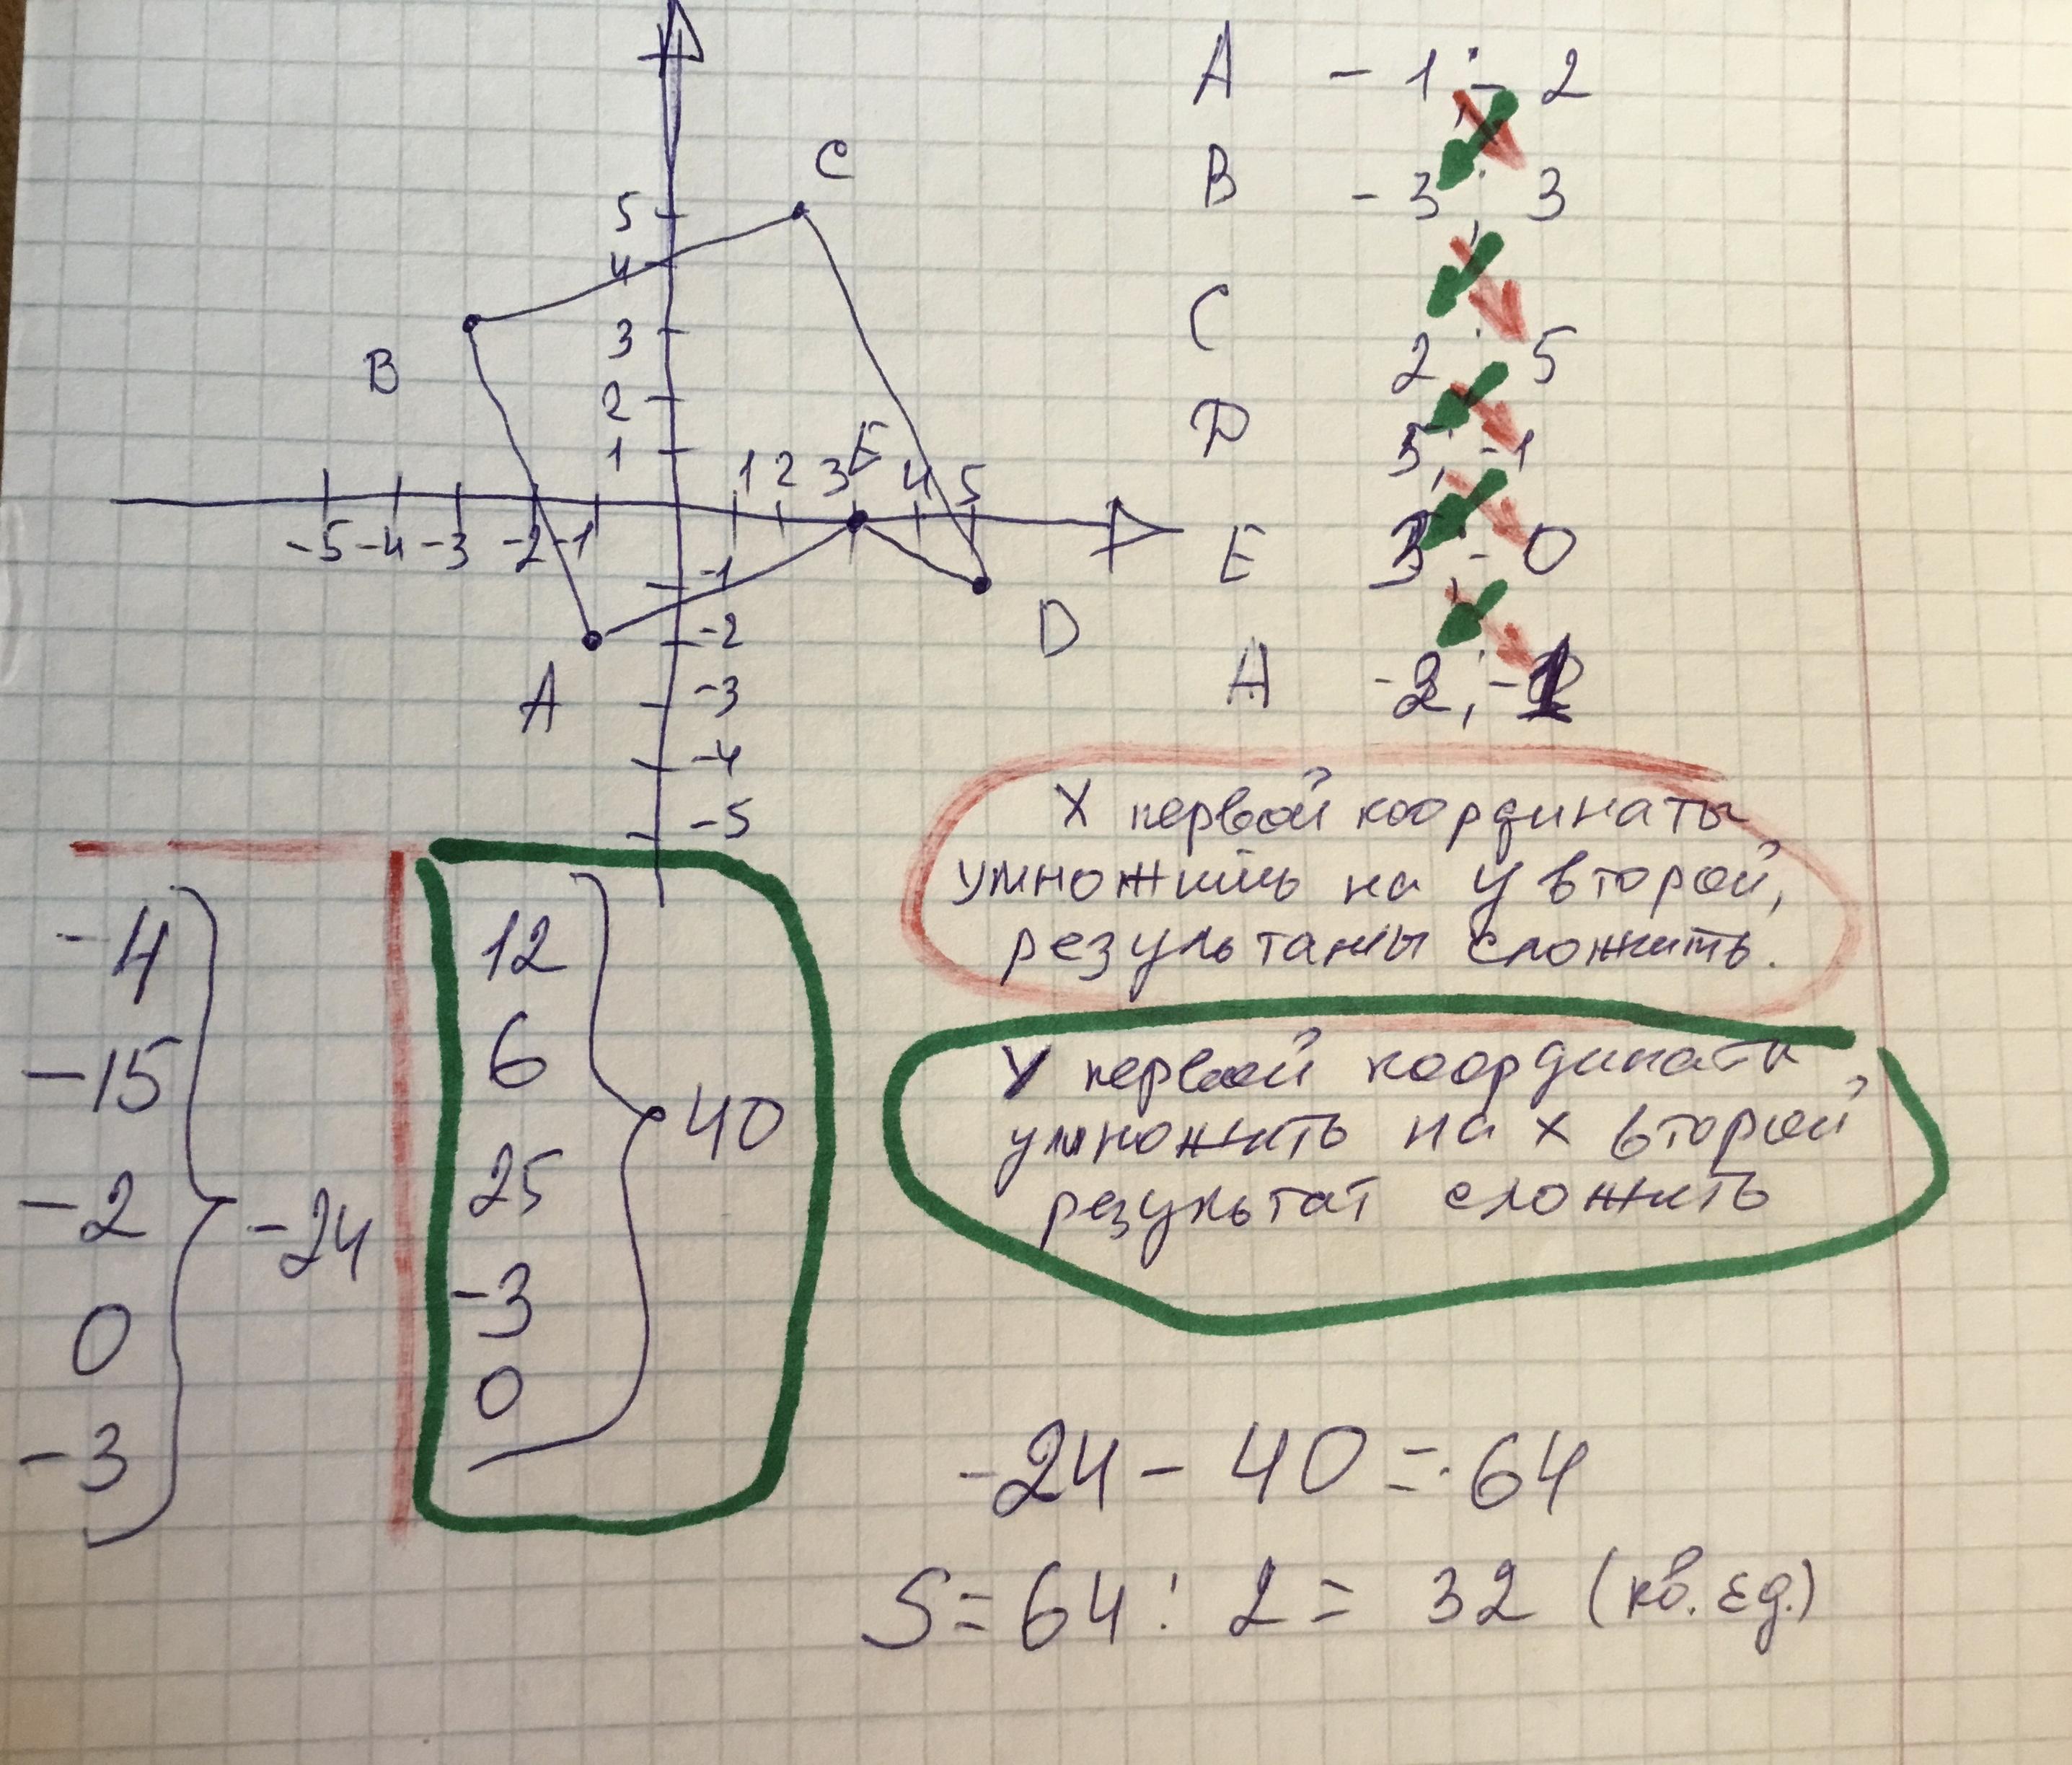 A -1; -2
B -3; 3
C 2; 5
D 5; -1
E 3; 0
A -2; -1
C
5
4
3
2
1
B
E
1 2 3 4 5
-5 -4 -3 -2 -1
-1
-2
-3
-4
-5
A
D
X первой координаты
умножить на y второй,
результаты сложить.
У первой координаты
умножить на x второй
результат сложить
-4
-15
-2
0
-3
-24
12
6
25
-3
0
40
-24 - 40 = -64
S = 64 : 2 = 32 (кв. ед.)